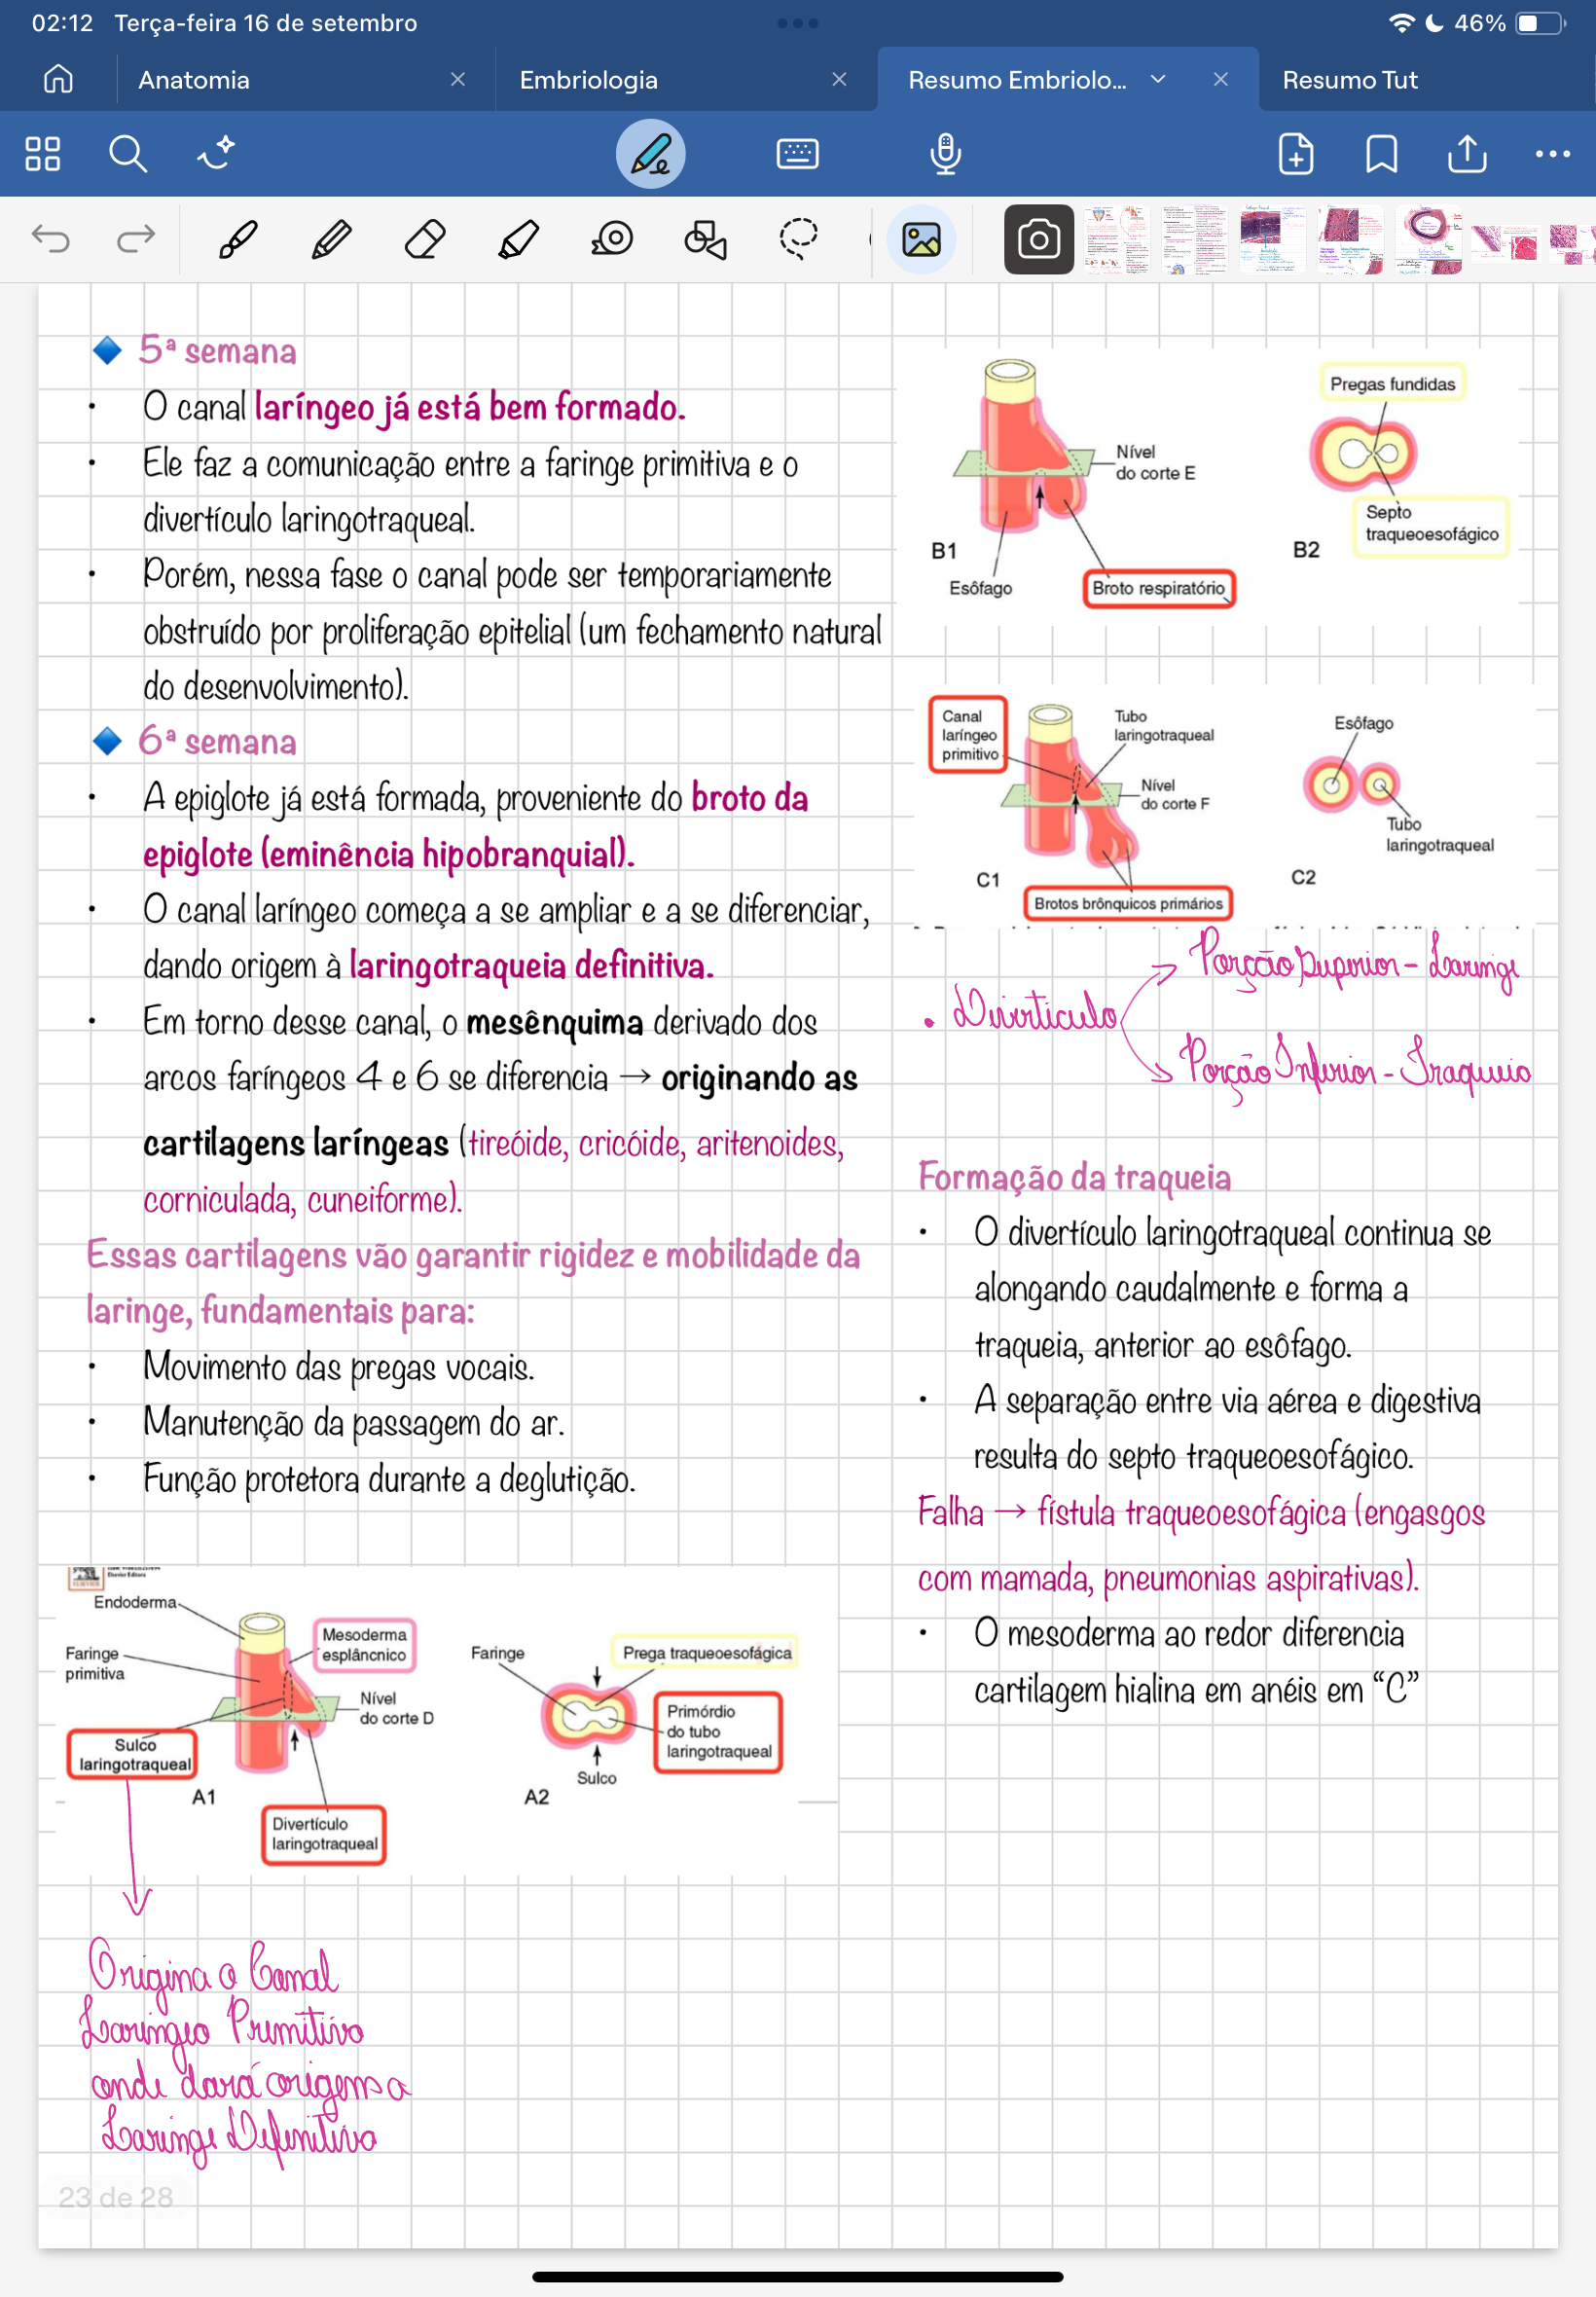 02:12 Terça-feira 16 de setembro
46%
Anatomia
Embriologia
Resumo Embriolo...
Resumo Tut
5ª semana
• O canal laríngeo já está bem formado.
• Ele faz a comunicação entre a faringe primitiva e o
divertículo laringotraqueal.
• Porém, nessa fase o canal pode ser temporariamente
obstruído por proliferação epitelial (um fechamento natural
do desenvolvimento).
6ª semana
• A epiglote já está formada, proveniente do broto da
epiglote (eminência hipobranquial).
• O canal laríngeo começa a se ampliar e a se diferenciar,
dando origem à laringotraqueia definitiva.
• Em torno desse canal, o mesênquima derivado dos
arcos faríngeos 4 e 6 se diferencia → originando as
cartilagens laríngeas (tireóide, cricóide, aritenoides,
corniculada, cuneiforme).
Essas cartilagens vão garantir rigidez e mobilidade da
laringe, fundamentais para:
• Movimento das pregas vocais.
• Manutenção da passagem do ar.
• Função protetora durante a deglutição.
ELSEVIER
Elsevier Editora
Endoderma
Faringe
primitiva
Mesoderma
esplâncnico
Nível
do corte D
Sulco
laringotraqueal
A1
Divertículo
laringotraqueal
Faringe
Prega traqueoesofágica
Primórdio
do tubo
laringotraqueal
Sulco
A2
Origina o Canal
Laringeo Primitivo
onde dará origem a
Laringe Definitiva
23 de 28
Pregas fundidas
Nível
do corte E
Septo
traqueoesofágico
B1
B2
Esôfago
Broto respiratório
Canal
laríngeo
primitivo
Tubo
laringotraqueal
Nível
do corte F
Esôfago
Tubo
laringotraqueal
C1
C2
Brotos brônquicos primários
Porção Superior - Laringe
• Divertículo
Porção Inferior - Traqueia
Formação da traqueia
• O divertículo laringotraqueal continua se
alongando caudalmente e forma a
traqueia, anterior ao esôfago.
• A separação entre via aérea e digestiva
resulta do septo traqueoesofágico.
Falha → fístula traqueoesofágica (engasgos
com mamada, pneumonias aspirativas).
• O mesoderma ao redor diferencia
cartilagem hialina em anéis em “C”